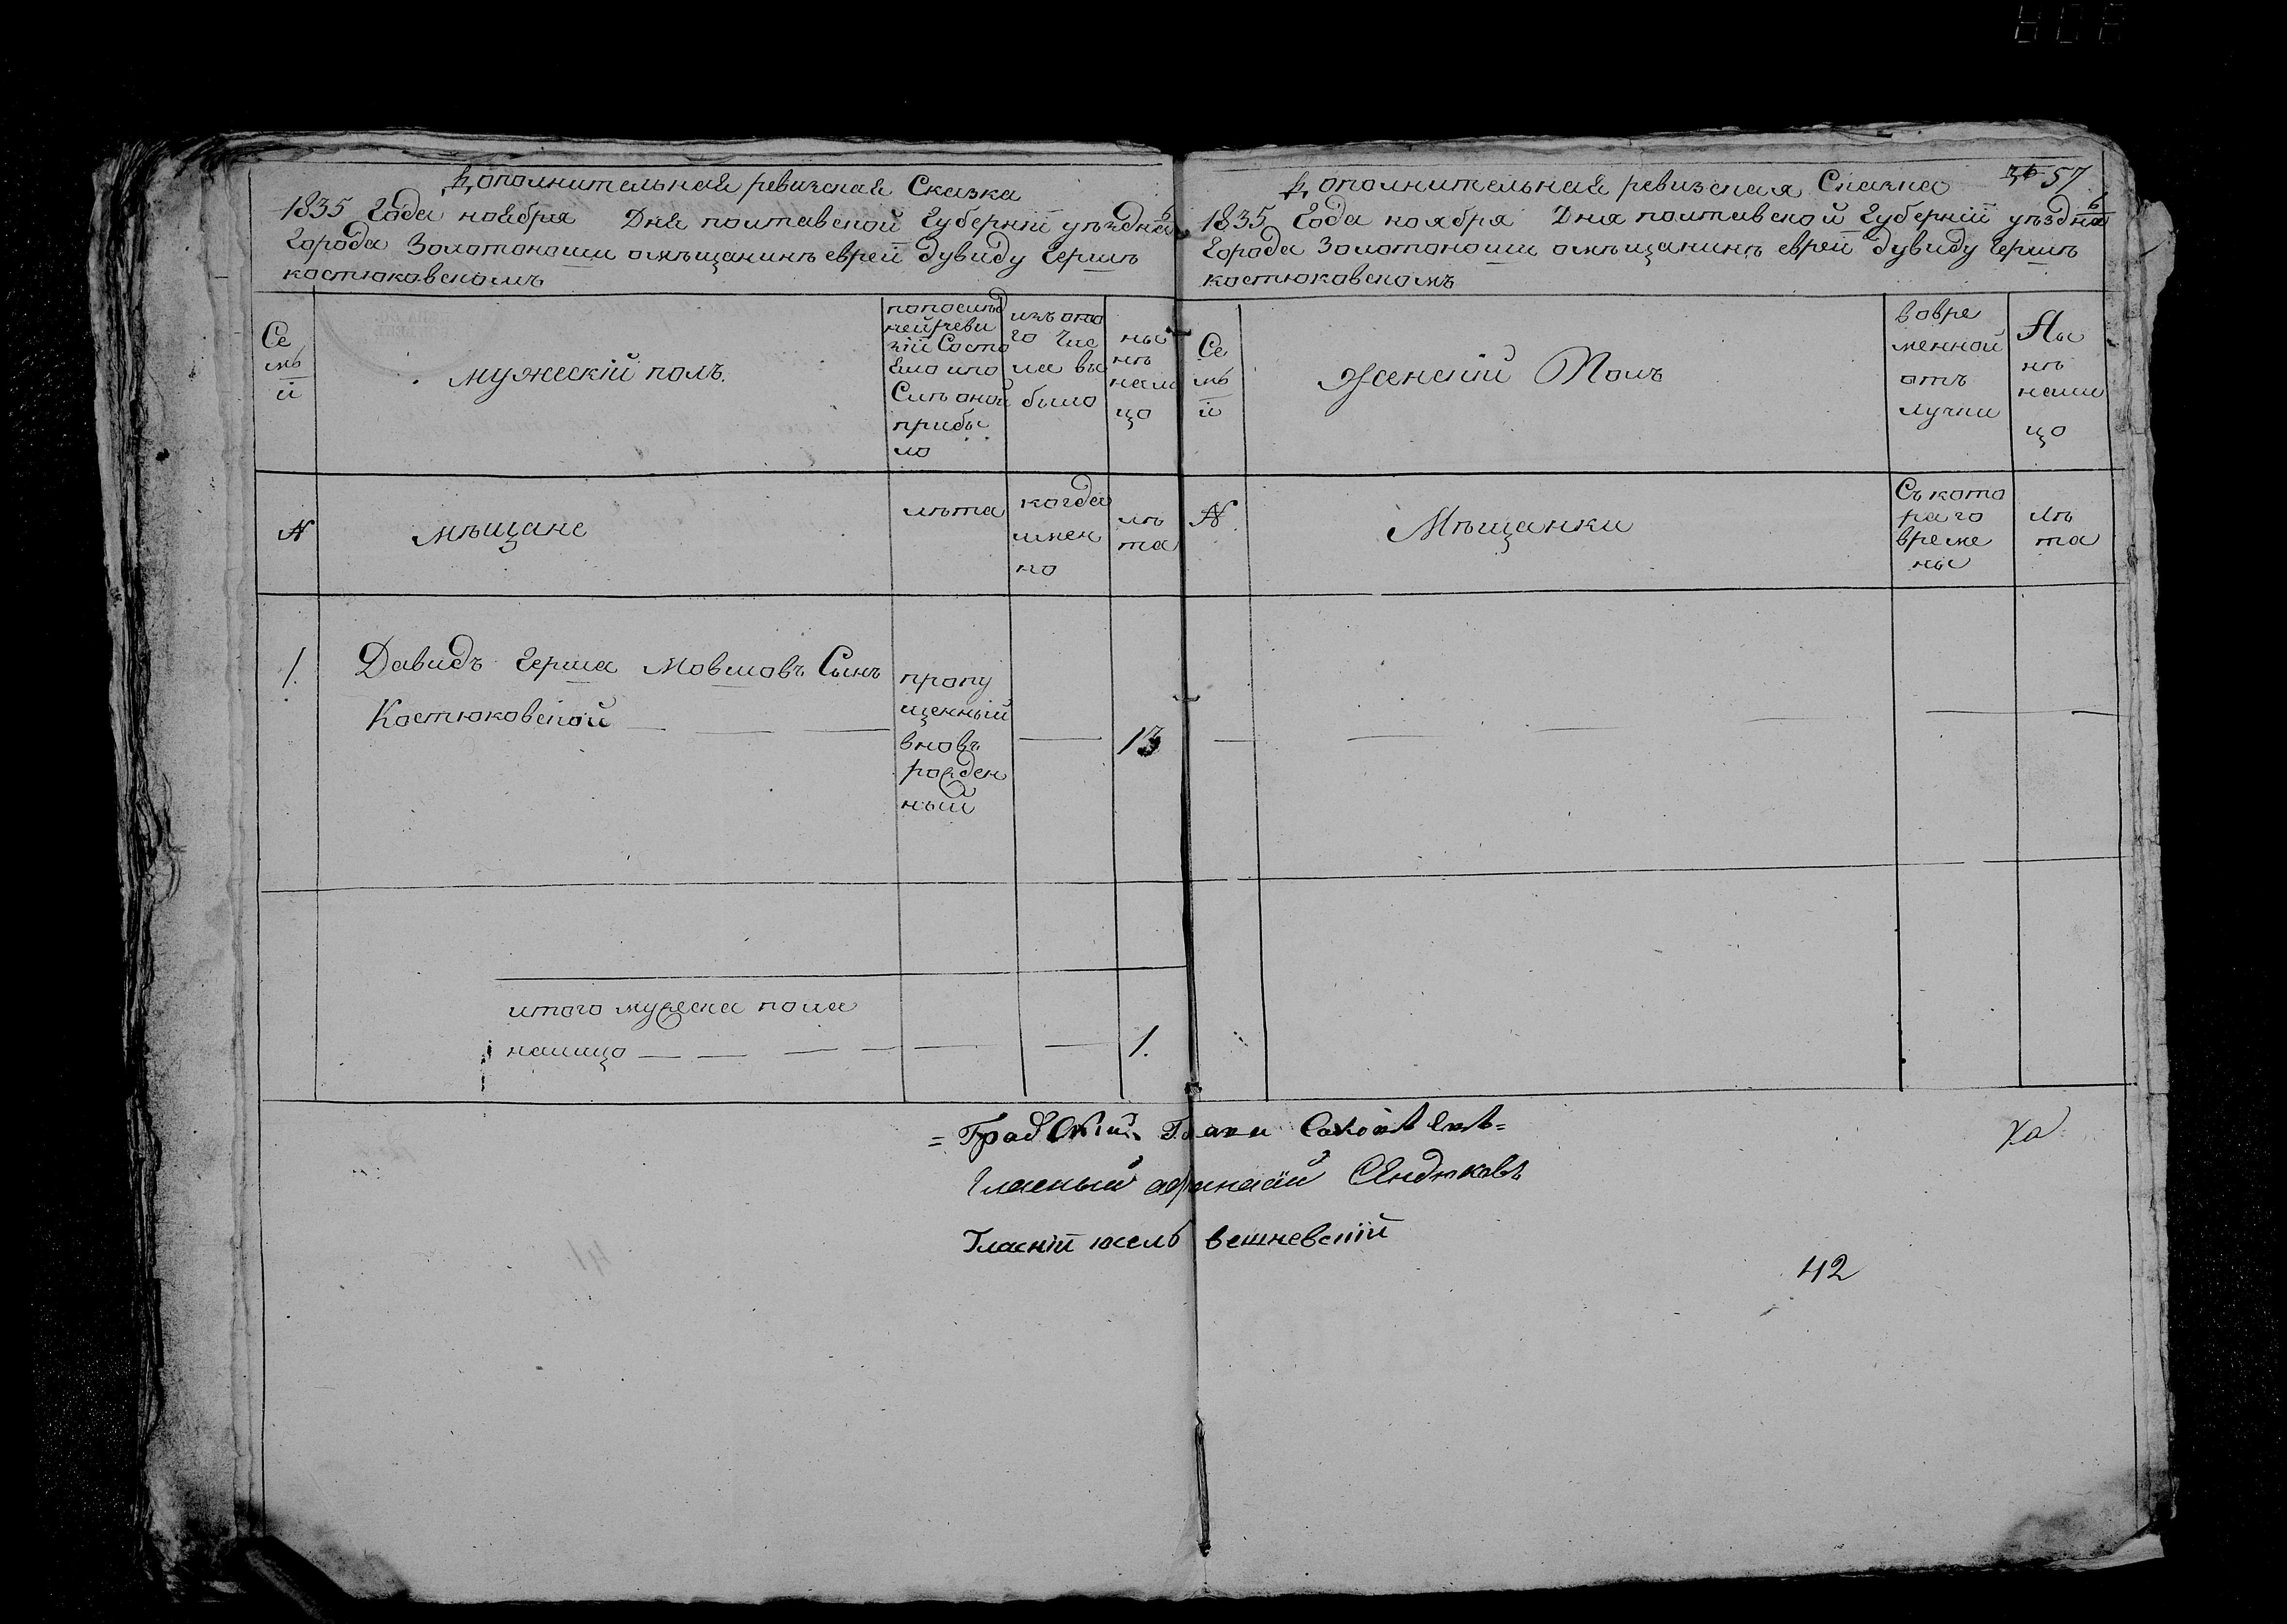 Дополнительная ревизская Сказка
1835 Года ноября Дня полтавской Губернии уездна
Города Золотоноши омѣщанинѣ еврей Дувиду Гершѣ
костюковскомъ
Се
мь
и
мужескій полъ.
попослѣд
ней реви
зіи Состо
яло ипо
Слѣ оной
прибы
ло
изъ она
го чис
ла вы
было
ны
нѣ
нали
цо
№
мѣщане
лѣта
когда
имен
но
лѣ
та
1.
Давидъ Герша Мовшовъ Сынъ
Костюковской
пропу
щенный
вновь
рожден
ный
13
итого мужеска пола
налицо
1.
Дополнительная ревизская Сказка
57
1835 Года ноября Дня полтавской Губерніи уѣздна
Города Золотоноши омѣщанинѣ еврей Дувиду Гершѣ
костюковскомъ
Се
мь
и
Женскій Полъ
вовре
менной
отъ
лучки
Ны
нѣ
нали
цо
№
Мѣщанки
Съ кото
раго
време
ны
лѣ
та
Градскій
Гласный афанасій Сендюковъ
Гласній юсель вешневскій
42